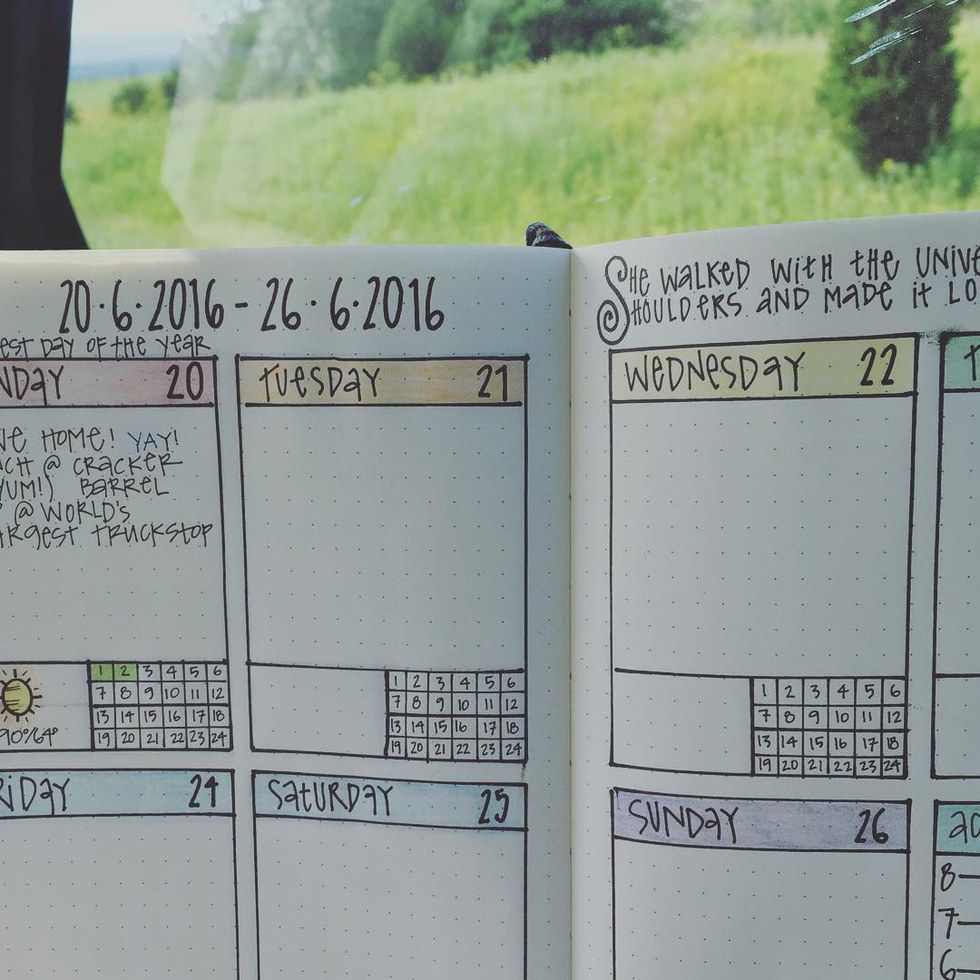 20·6·2016 - 26·6·2016
EST DAY OF THE YEAR
NDAY 20
VE HOME! YAY!
CH @ CRACKER
YUM!) BARREL
@ WORLD'S
ARGEST TRUCKSTOP
1 2 3 4 5 6
7 8 9 10 11 12
13 14 15 16 17 18
19 20 21 22 23 24
90°/64°
TUESDAY 21
1 2 3 4 5 6
7 8 9 10 11 12
13 14 15 16 17 18
19 20 21 22 23 24
RIDAY 24
SATURDAY 25
SHE WALKED WITH THE UNIVE
SHOULDERS AND MADE IT LO
WEDNESDAY 22
1 2 3 4 5 6
7 8 9 10 11 12
13 14 15 16 17 18
19 20 21 22 23 24
T
SUNDAY 26
AC
8
7
6